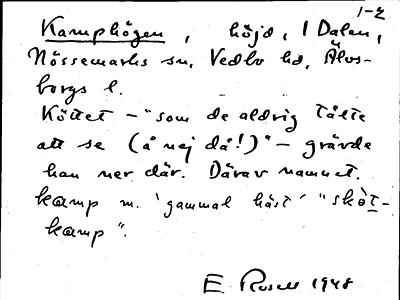 1-2
Kamphögen, höjd, I Dalen,
Nössemarks sn, Vedbo hd, Älvs-
borgs l.
Köttet – "som de aldrig tålte
att se (å nej då!)" – grävde
han ner där. Därav namnet.
kamp m. 'gammal häst' "sköt-
kamp".
E. Rosell 1948